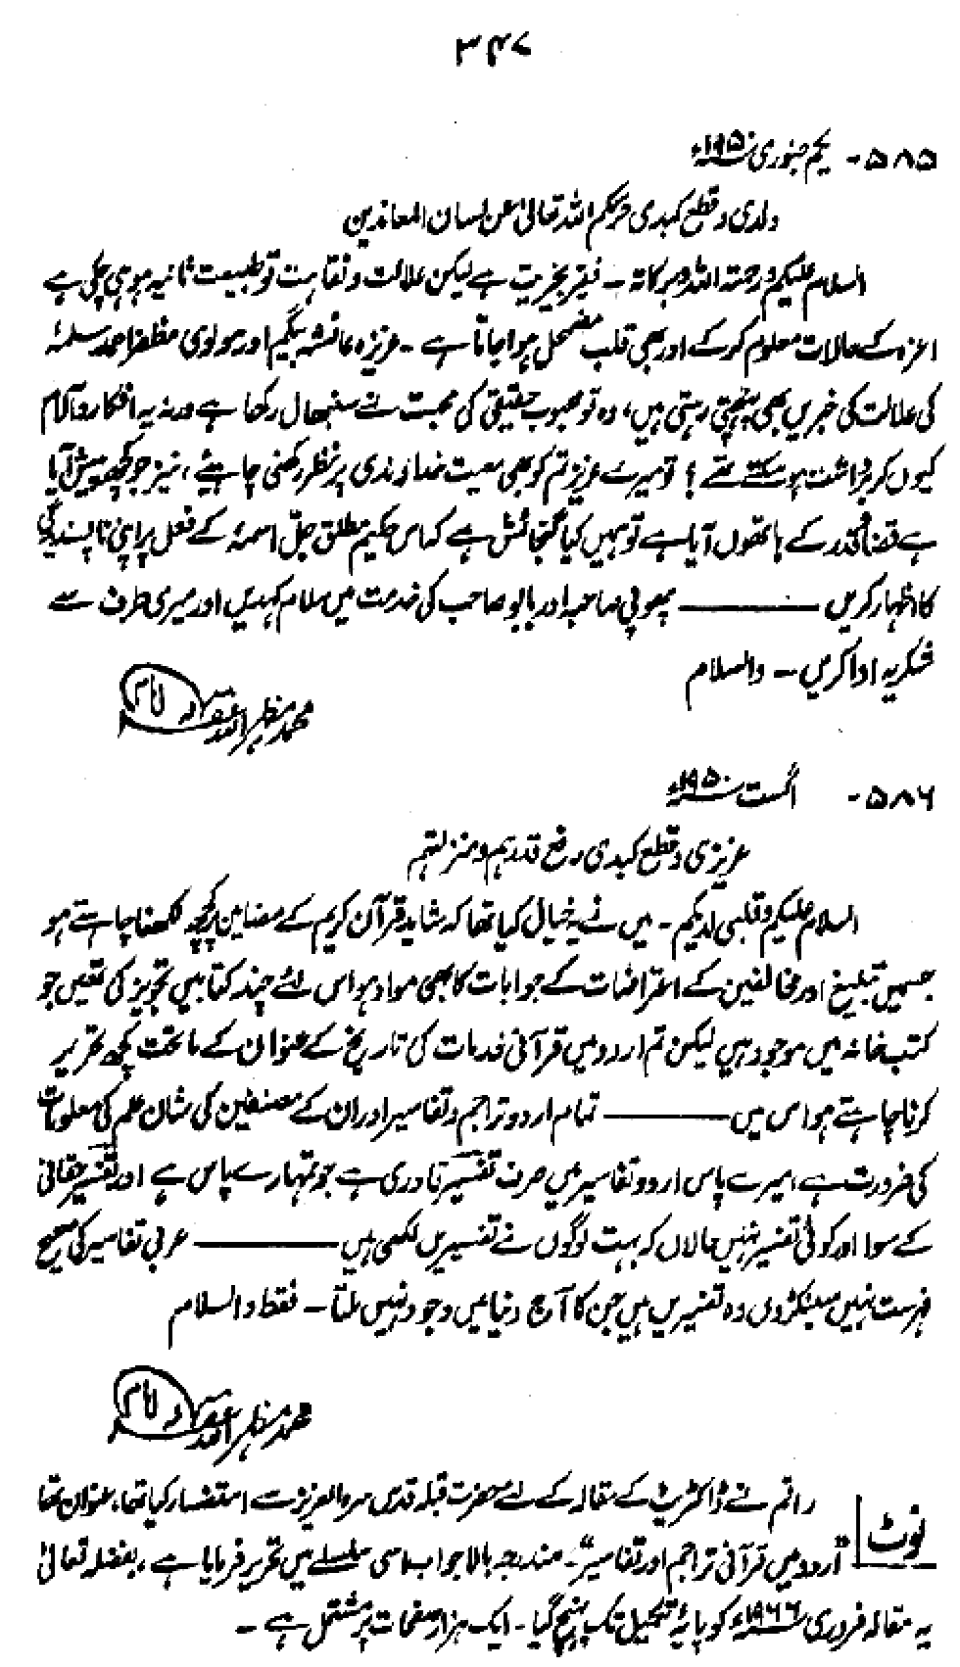 ۳۴۷
۵۸۵- یکم جنوری ۱۹۵۰ء
ولدی و قطع کبدی حرسکم اللہ تعالیٰ عن لسان المعاندین
السلام علیکم ورحمۃ اللہ وبرکاتہ ۔ فقیر بخیریت ہے لیکن علالت ونقاہت تو طبیعت ثانیہ ہو ہی چکی ہے
اعزہ کے حالات معلوم کرکے اور بھی قلب مضمحل ہوا جاتا ہے ۔ عزیزہ عائشہ بیگم اور مولوی مظفر احمد سلمہٗ
کی علالت کی خبریں بھی پہنچتی رہتی ہیں، وہ تو محبوب حقیقی کی محبت نے سنبھال رکھا ہے ورنہ یہ افکار وآلام
کیوں کر برداشت ہو سکتے تھے؟ تو میرے عزیز تم کو بھی معیت خداوندی پر نظر رکھنی چاہیئے، نیز جو کچھ پیش آیا
ہے قضا وقدر کے ہاتھوں آیا ہے تو ہمیں کیا گنجائش ہے کہ اس حکیم مطلق جل اسمہٗ کے فعل پر اپنی ناپسندیدگی
کا اظہار کریں ـــــــــ پھوپی صاحبہ اور بابو صاحب کی خدمت میں سلام کہدیں اور میری طرف سے
شکریہ ادا کریں ۔ والسلام
محمد مظہر اللہ غفرلہ امام
۵۸۶- اگست ۱۹۵۰ء
عزیزی و قطع کبدی رفع قدرہم و منزلتہم
السلام علیکم وقلبی لدیکم ۔ میں نے یہ خیال کیا تھا کہ شاید قرآن کریم کے مضامین پر کچھ لکھنا چاہتے ہو
جسمیں تبلیغ اور مخالفین کے اعتراضات کے جوابات کا بھی مواد ہو اس لئے چند کتابیں تجویز کی تھیں جو
کتب خانہ میں موجود ہیں لیکن تم اردو میں قرآنی خدمات کی تاریخ کے عنوان کے ماتحت کچھ تحریر
کرنا چاہتے ہو اس میں ـــــــــ تمام اردو تراجم وتفاسیر اور ان کے مصنفین کی شان علم کی معلومات
کی ضرورت ہے، میرے پاس اردو تفاسیر میں صرف تفسیر قادری ہے جو تمہارے پاس ہے اور تفسیر حقانی
کے سوا اور کوئی تفسیر نہیں حالاں کہ بہت لوگوں نے تفسیریں لکھی ہیں ـــــــــ عربی تفاسیر کی صحیح
فہرست نہیں سینکڑوں وہ تفسیریں ہیں جن کا آج دنیا میں وجود نہیں ملتا ۔ فقط والسلام
محمد مظہر اللہ غفرلہ امام
نوٹ راقم نے ڈاکٹریٹ کے مقالہ کے لئے حضرت قبلہ قدس سرہ العزیز سے استفسار کیا تھا، عنوان تھا
"اردو میں قرآنی تراجم اور تفاسیر"۔ مندرجہ بالا جواب اسی سلسلے میں تحریر فرمایا ہے، بفضلہ تعالیٰ
یہ مقالہ فروری ۱۹۶۶ء کو پایۂ تکمیل تک پہنچ گیا ۔ ایک ہزار صفحات پر مشتمل ہے ۔